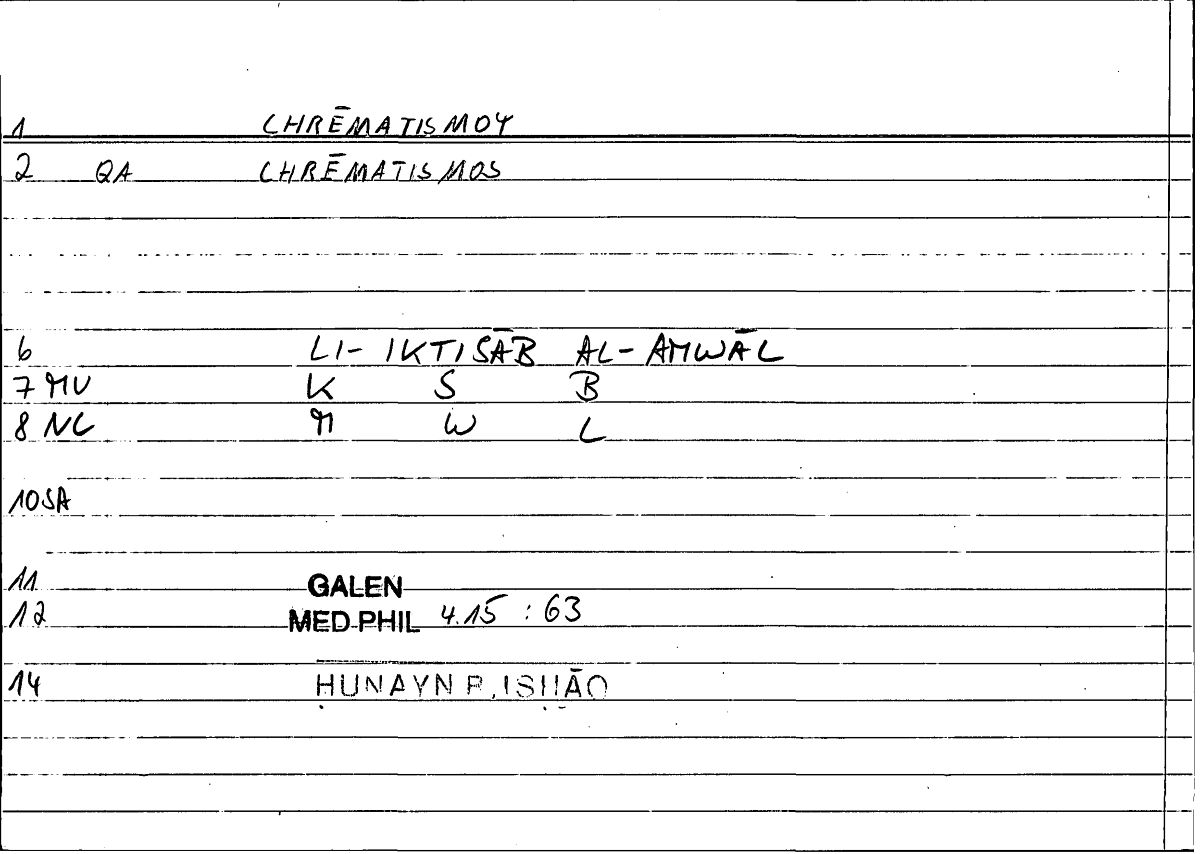 1 CHRĒMATISMOY
2 QA CHRĒMATISMOS
6 LI- IKTISĀB AL-AMWĀL
7 MV K S B
8 NC M W L
10 SA
11 GALEN
12 MED.PHIL 4.15 : 63
14 ḤUNAYN B. ISḤĀQ